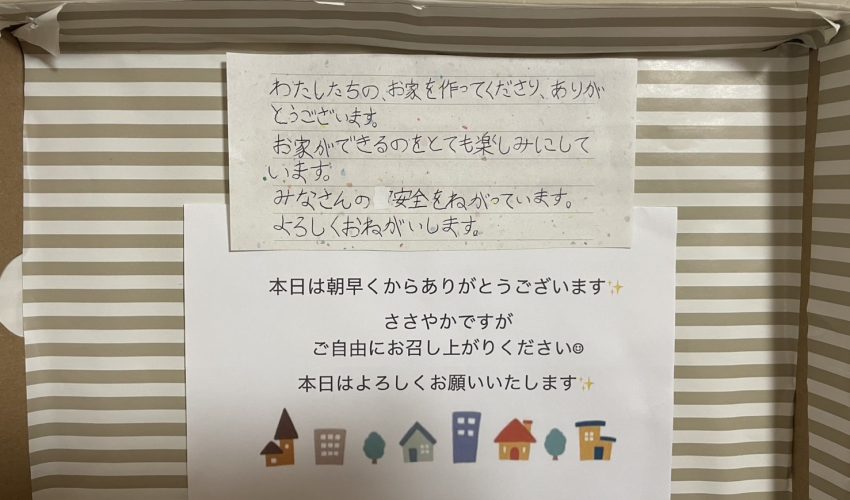 わたしたちの、お家を作ってくださり、ありが
とうございます。
お家ができるのをとても楽しみにして
います。
みなさんの 安全をねがっています。
よろしくおねがいします。
本日は朝早くからありがとうございます✨
ささやかですが
ご自由にお召し上がりください☺
本日はよろしくお願いいたします✨